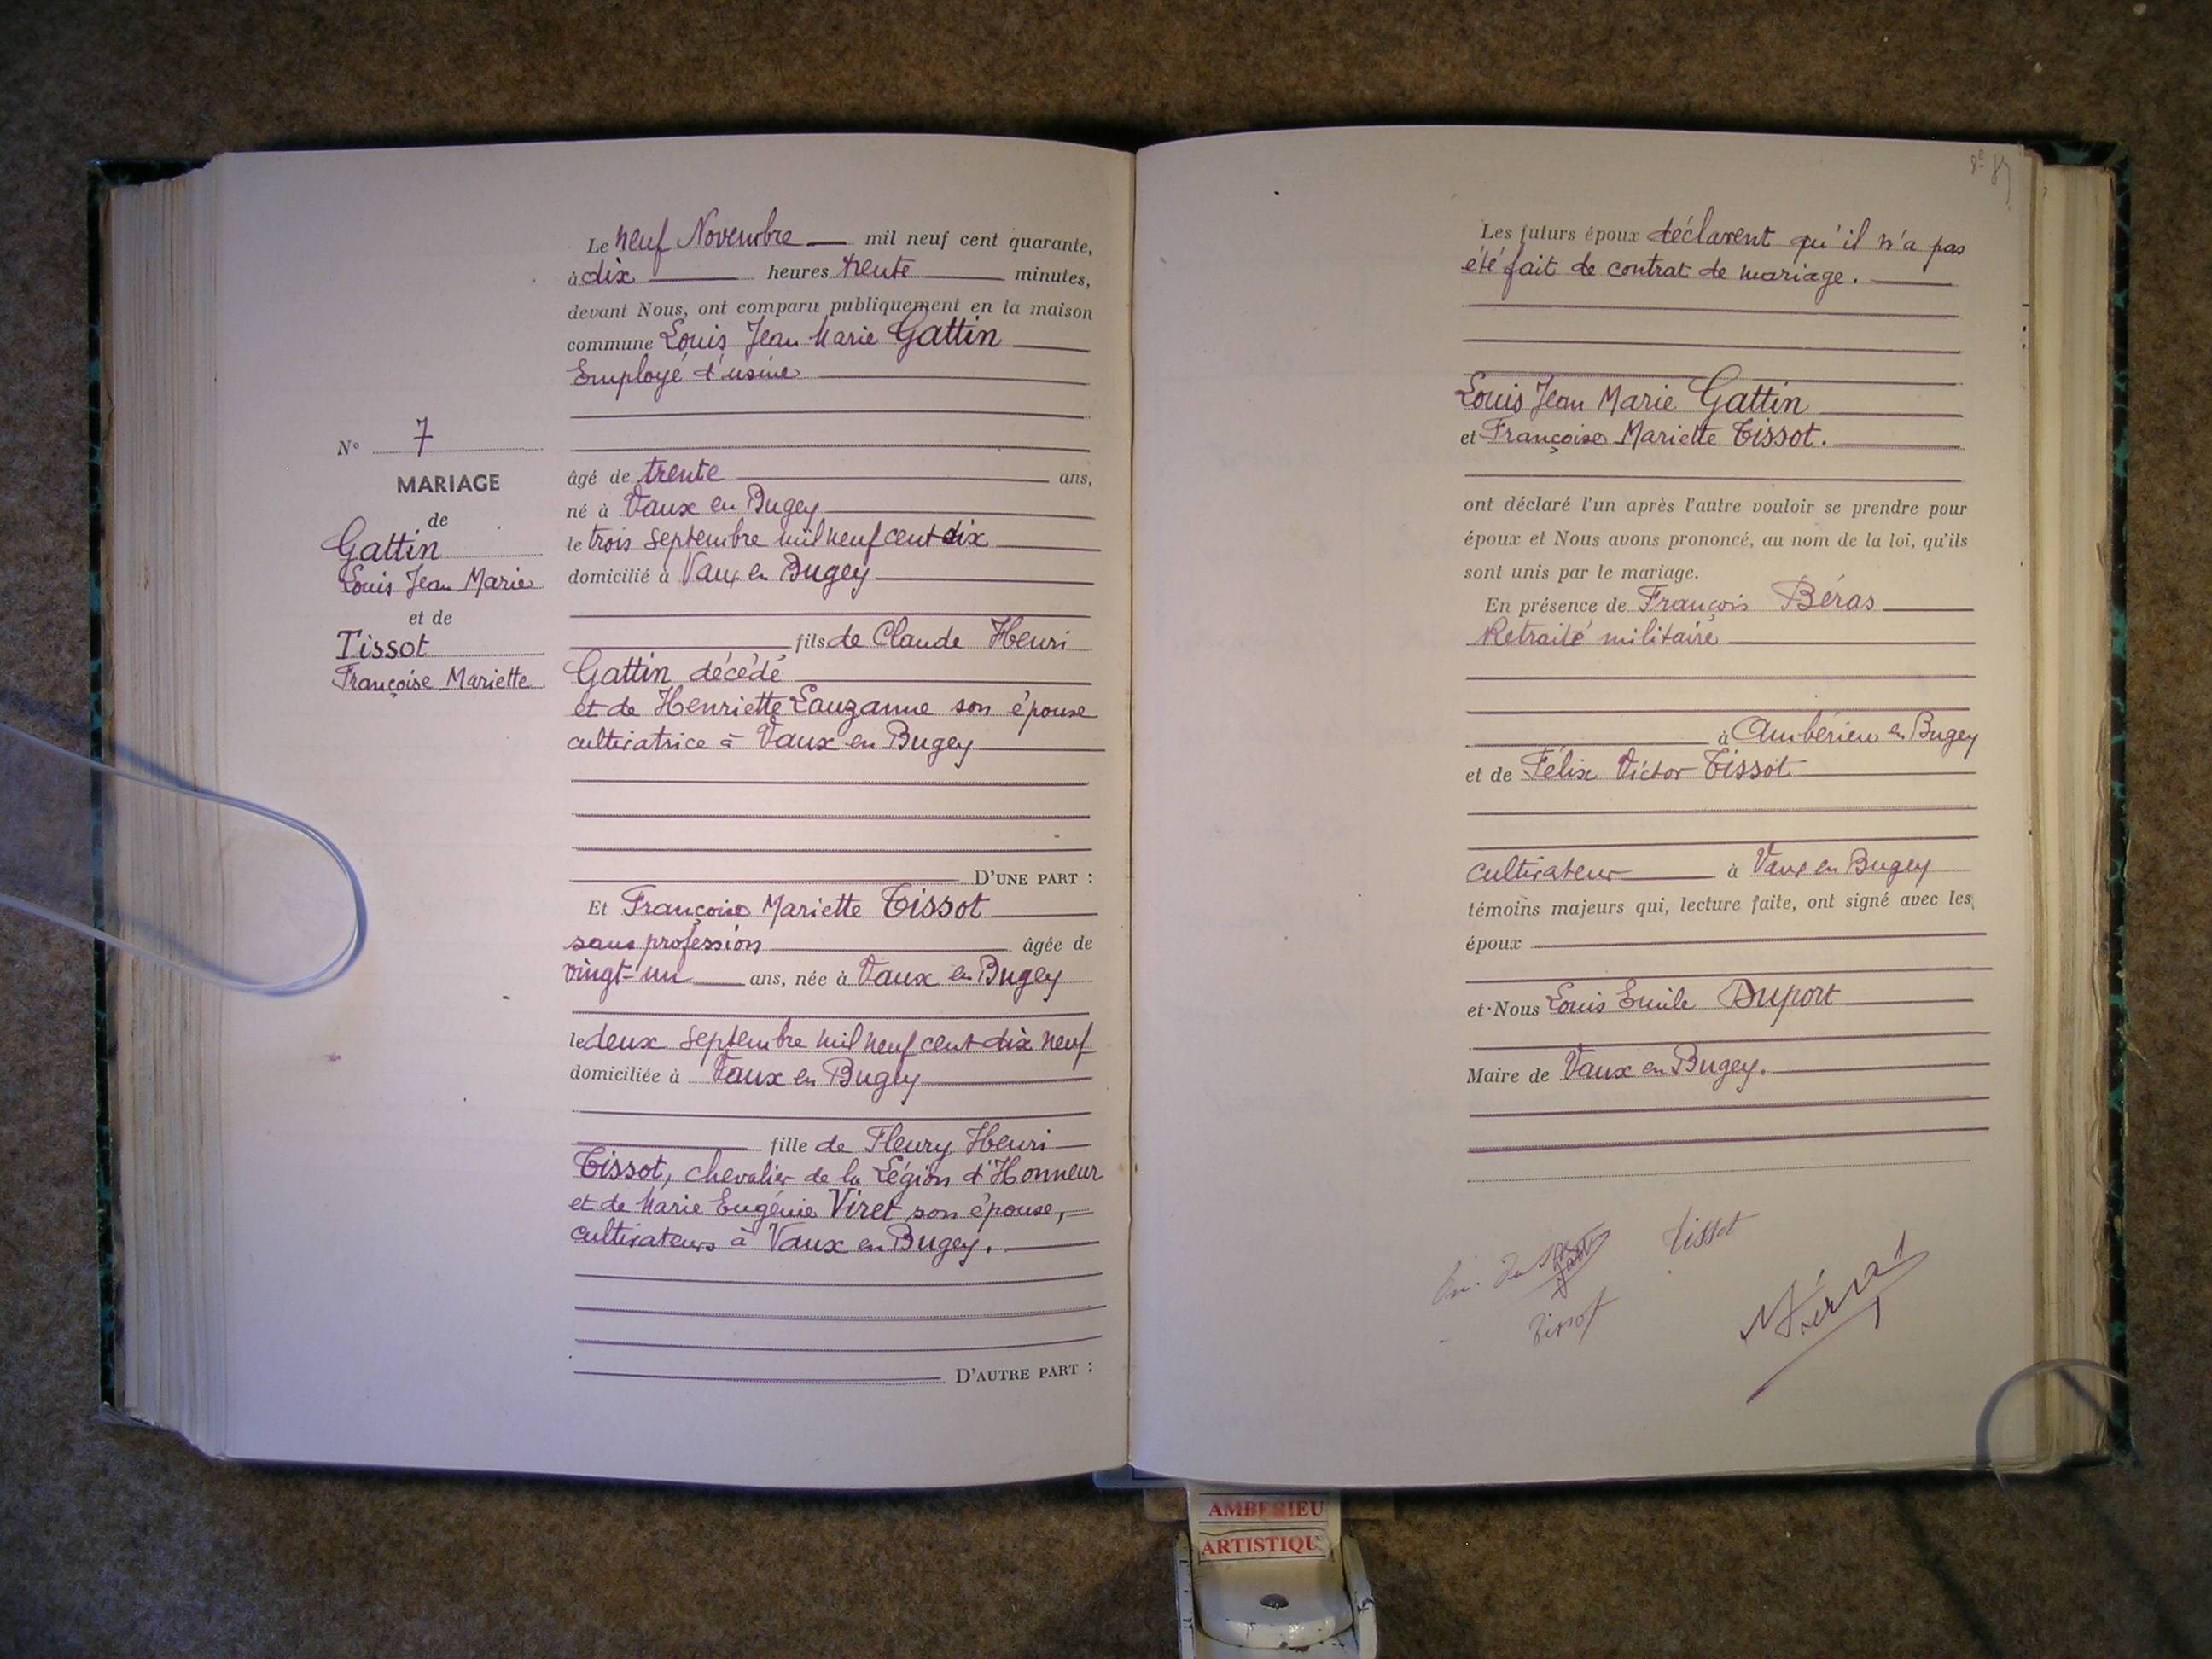 N° 7
MARIAGE
de
Gattin
Louis Jean Marie
et de
Tissot
Françoise Mariette
Le neuf Novembre mil neuf cent quarante,
à dix heures trente minutes,
devant Nous, ont comparu publiquement en la maison
commune Louis Jean Marie Gattin
Employé d'usine
âgé de trente ans,
né à Vaux en Bugey
le trois septembre mil neuf cent dix
domicilié à Vaux en Bugey
fils de Claude Henri
Gattin décédé
et de Henriette Lauzanne son épouse
cultivatrice à Vaux en Bugey
D'UNE PART :
Et Françoise Mariette Tissot
sans profession âgée de
vingt-un ans, née à Vaux en Bugey
le deux septembre mil neuf cent dix neuf
domiciliée à Vaux en Bugey
fille de Fleury Henri
Tissot, chevalier de la Légion d'Honneur
et de Marie Eugénie Viret son épouse,
cultivateurs à Vaux en Bugey.
D'AUTRE PART :
Les futurs époux déclarent qu'il n'a pas
été fait de contrat de mariage.
Louis Jean Marie Gattin
et Françoise Mariette Tissot.
ont déclaré l'un après l'autre vouloir se prendre pour
époux et Nous avons prononcé, au nom de la loi, qu'ils
sont unis par le mariage.
En présence de François Béras
Retraité militaire
à Ambérieu en Bugey
et de Félix Victor Tissot
cultivateur à Vaux en Bugey
témoins majeurs qui, lecture faite, ont signé avec les
époux
et Nous Louis Emile Duport
Maire de Vaux en Bugey.
Tissot
Tissot
AMBERIEU
ARTISTIQU